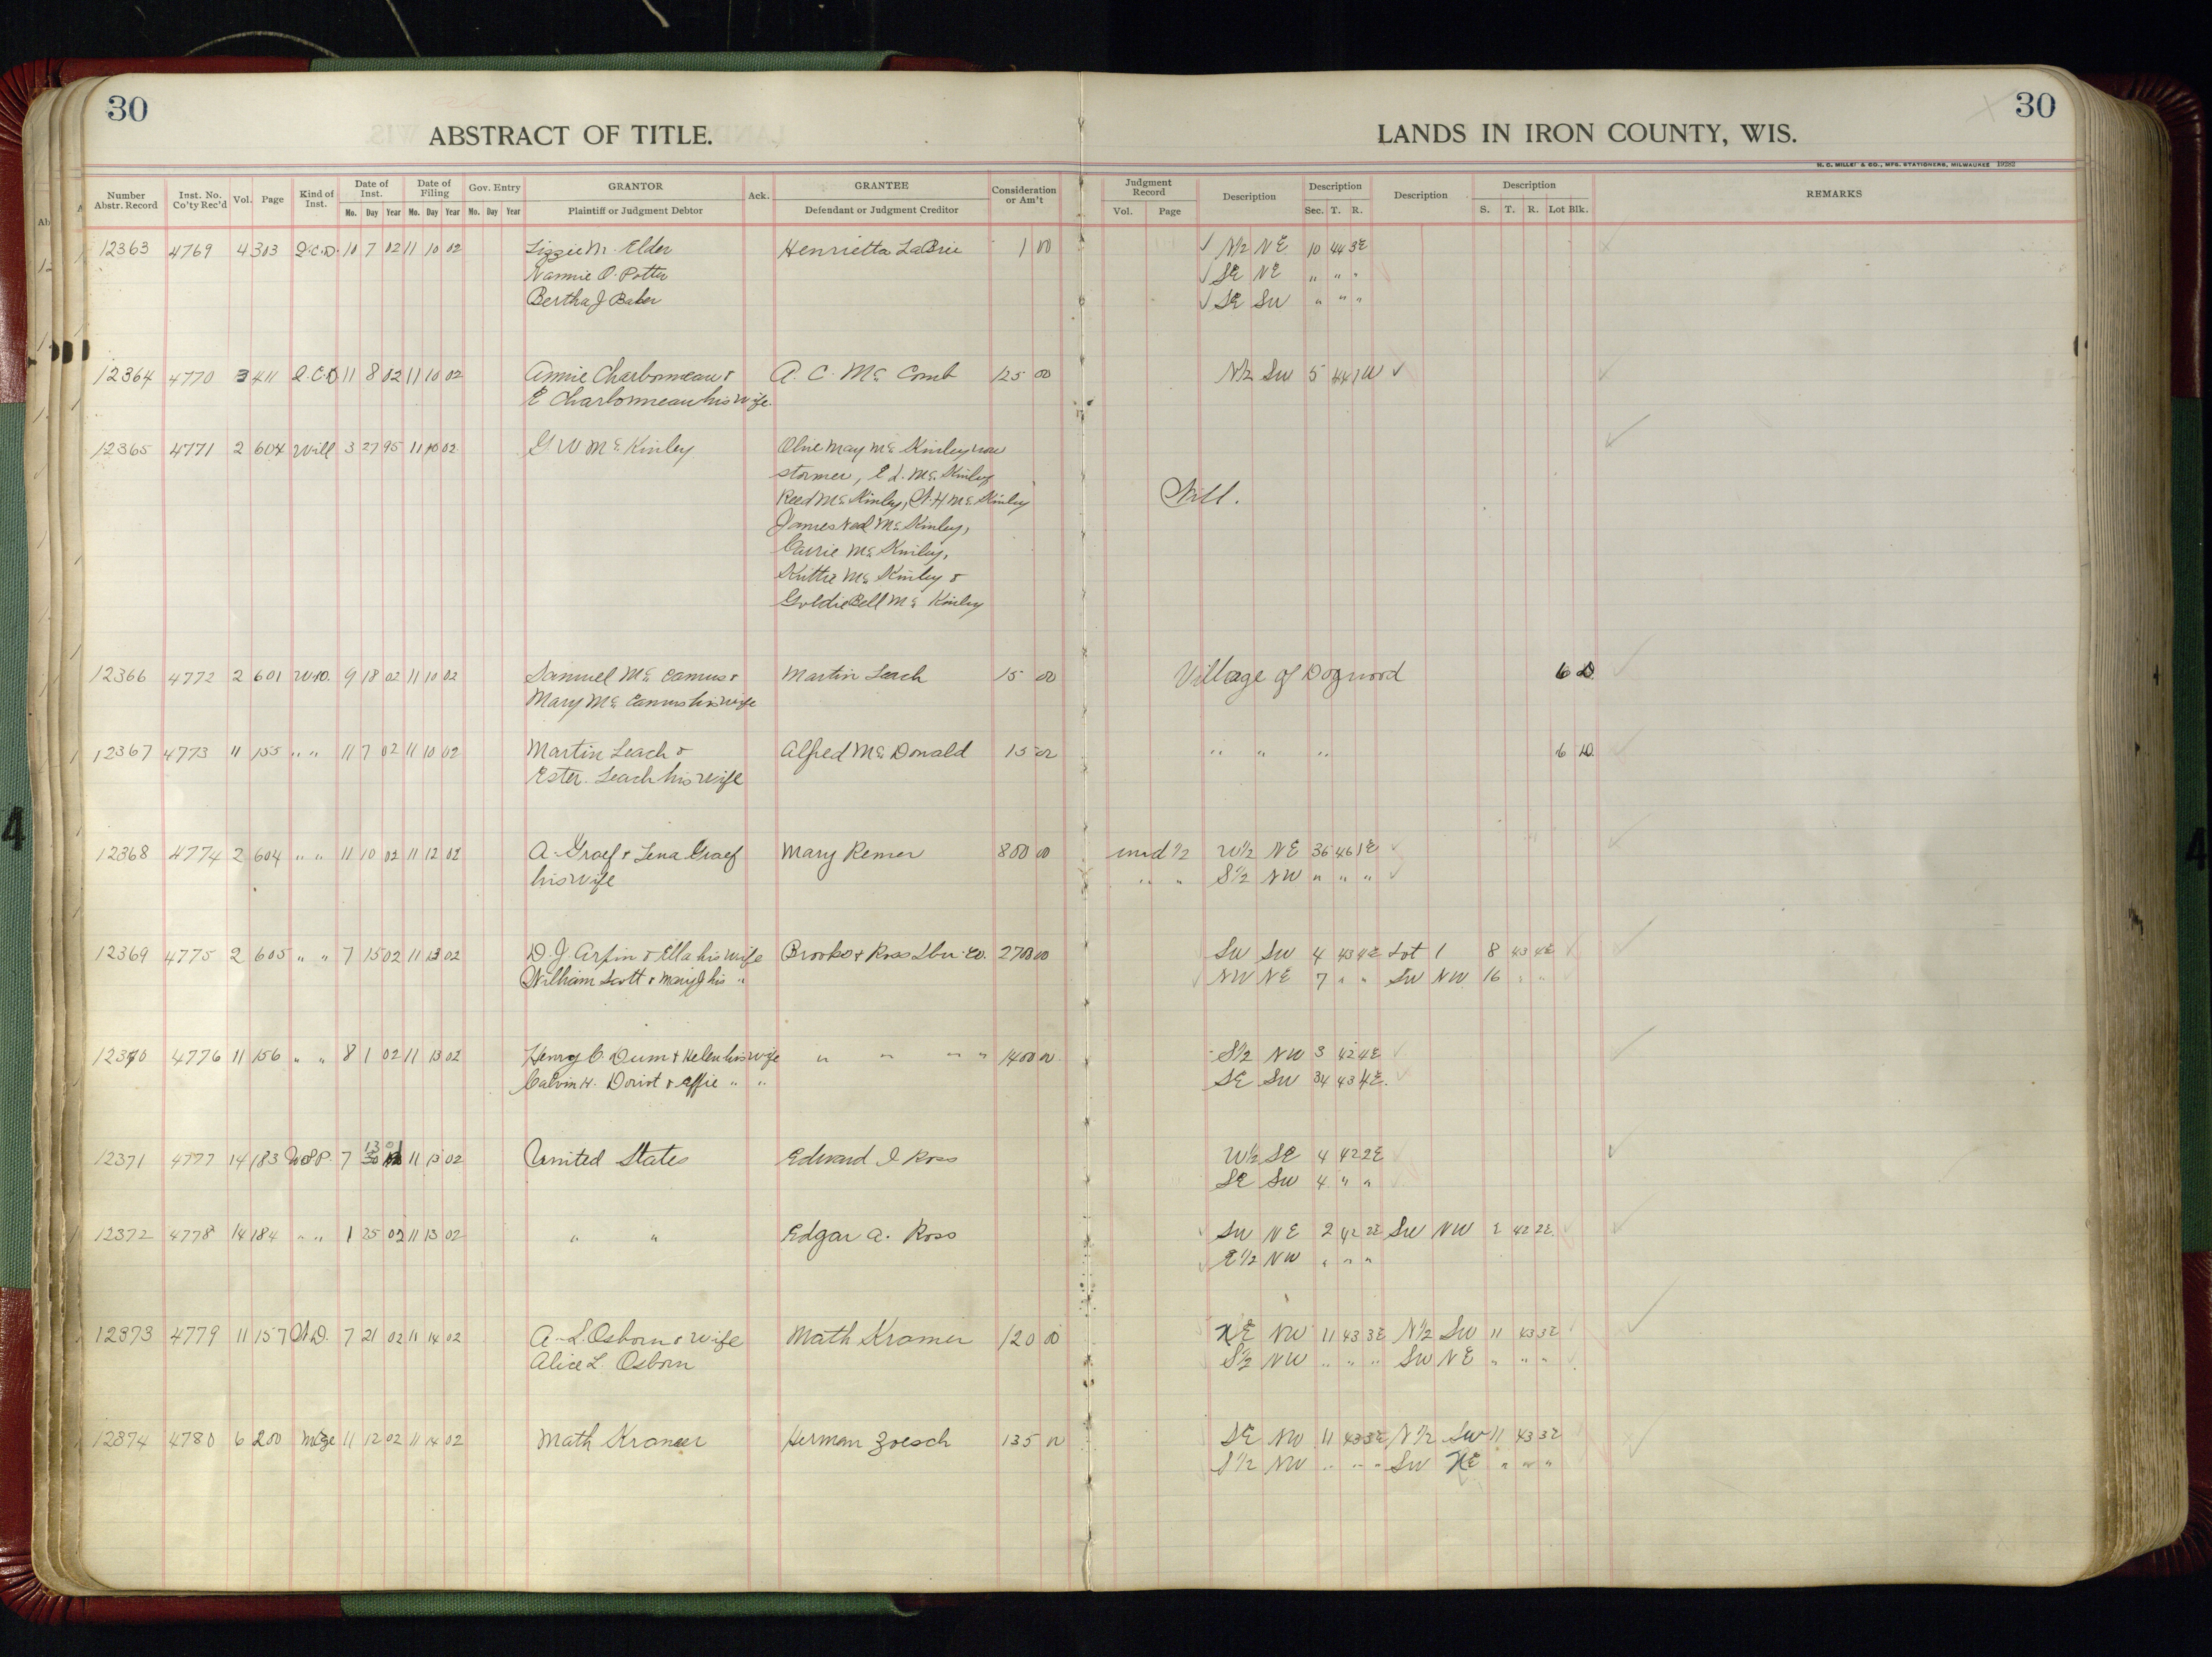 30
ABSTRACT OF TITLE.
LANDS IN IRON COUNTY, WIS.
30
H. C. MILLER CO., MFG. STATIONERS, MILWAUKEE 19282
Number Abstr. Record Inst. No. Co'ty Rec'd Vol. Page Kind of Inst. Date of Inst. Mo. Day Year Date of Filing Mo. Day Year Gov. Entry Mo. Day Year GRANTOR Plaintiff or Judgment Debtor Ack. GRANTEE Defendant or Judgment Creditor Consideration or Am't Judgment Record Vol. Page Description Description Sec. T. R. Description Description S. T. R. Lot Blk. REMARKS
12363 4769 4 303 Q.C.D. 10 7 02 11 10 02 Lizzie M. Elder Henrietta LaBrie 1 00 N½ NE 10 44 3E
Nannie O. Potter SE NE " " "
Bertha J Baber SE SW " " "
12364 4770 3 411 Q.C.D 11 8 02 11 10 02 Annie Charbonneau & A. C. Mc Comb 125 00 N½ SW 5 44 1W
E Charbonneau his wife.
12365 4771 2 604 Will 3 27 95 11 10 02 G W Mc Kinley Olive May Mc Kinley now
Stormer, E L. Mc Kinley
Reed Mc Kinley, W. H Mc Kinley Will.
James Neal Mc Kinley,
Carrie Mc Kinley,
Kittie Mc Kinley &
Goldie Bell Mc Kinley
12366 4772 2 601 W.D. 9 18 02 11 10 02 Samuel Mc Camus & Martin Leach 15 00 Village of Dogwood 6 D.
Mary Mc Camus his wife
12367 4773 11 155 " " 11 7 02 11 10 02 Martin Leach & Alfred Mc Donald 15 00 " " " 6 D.
Ester. Leach his wife
12368 4774 2 604 " " 11 10 02 11 12 02 A. Graef & Lena Graef Mary Remer 800 00 und ½ W½ NE 36 46 1E
his wife " " S½ NW " " "
12369 4775 2 605 " " 7 15 02 11 13 02 D. J. Arpin & Ella his wife Brooks & Ross Lbr. Co. 2700 00 SW SW 4 43 4E Lot 1 8 43 4E
William Scott & Mary J his " NW NE 7 " " SW NW 16 " "
12370 4776 11 156 " " 8 1 02 11 13 02 Henry C. Dum & Helen his wife " " " " 1400 00 S½ NW 3 42 4E
Calvin H. Doriot & Effie " " SE SW 34 43 4E.
12371 4777 14 183 7 13 11 13 02 United States Edward J Ross W½ SE 4 42 2E
SE SW 4 " "
12372 4778 14 184 " " 1 25 02 11 13 02 " " Edgar A. Ross SW NE 2 42 2E SW NW 2 42 2E.
E½ NW " " "
12373 4779 11 157 W.D. 7 21 02 11 14 02 A. L. Osborn & wife Math Kramer 120 00 NE NW 11 43 3E N½ SW 11 43 3E
Alice L. Osborn S½ NW " " " SW NE " " "
12374 4780 6 200 Mtge 11 12 02 11 14 02 Math Kramer Herman Zoesch 135 00 SE NW 11 43 3E N½ SW 11 43 3E
S½ NW " " " SW NE " " "